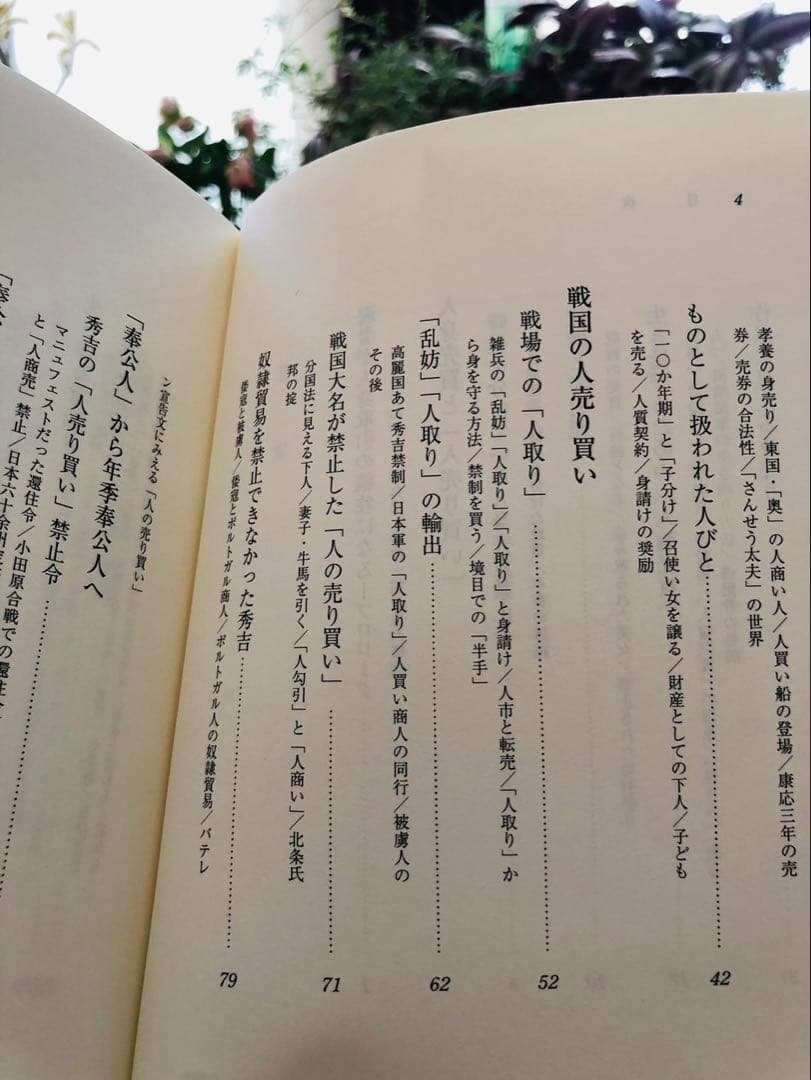 4
孝養の身売り／東国・「奥」の人商い人／人買い船の登場／康応三年の売
券／売券の合法性／「さんせう太夫」の世界
ものとして扱われた人びと……………………42
「一〇か年期」と「子分け」／召使い女を譲る／財産としての下人／子ども
を売る／人質契約／身請けの奨励
戦国の人売り買い
戦場での「人取り」……………………52
雑兵の「乱妨」「人取り」／「人取り」と身請け／人市と転売／「人取り」か
ら身を守る方法／禁制を買う／境目での「半手」
「乱妨」「人取り」の輸出……………………62
高麗国あて秀吉禁制／日本軍の「人取り」／人買い商人の同行／被虜人の
その後
戦国大名が禁止した「人の売り買い」……………………71
分国法に見える下人／妻子・牛馬を引く／「人勾引」と「人商い」／北条氏
邦の掟
奴隷貿易を禁止できなかった秀吉……………………79
倭寇と被虜人／倭寇とポルトガル商人／ポルトガル人の奴隷貿易／バテレ
ン宣告文にみえる「人の売り買い」
「奉公人」から年季奉公人へ
秀吉の「人売り買い」禁止令……
マニュフェストだった還住令／小田原合戦での還住令
と「人商売」禁止／日本六十余州
「奉公